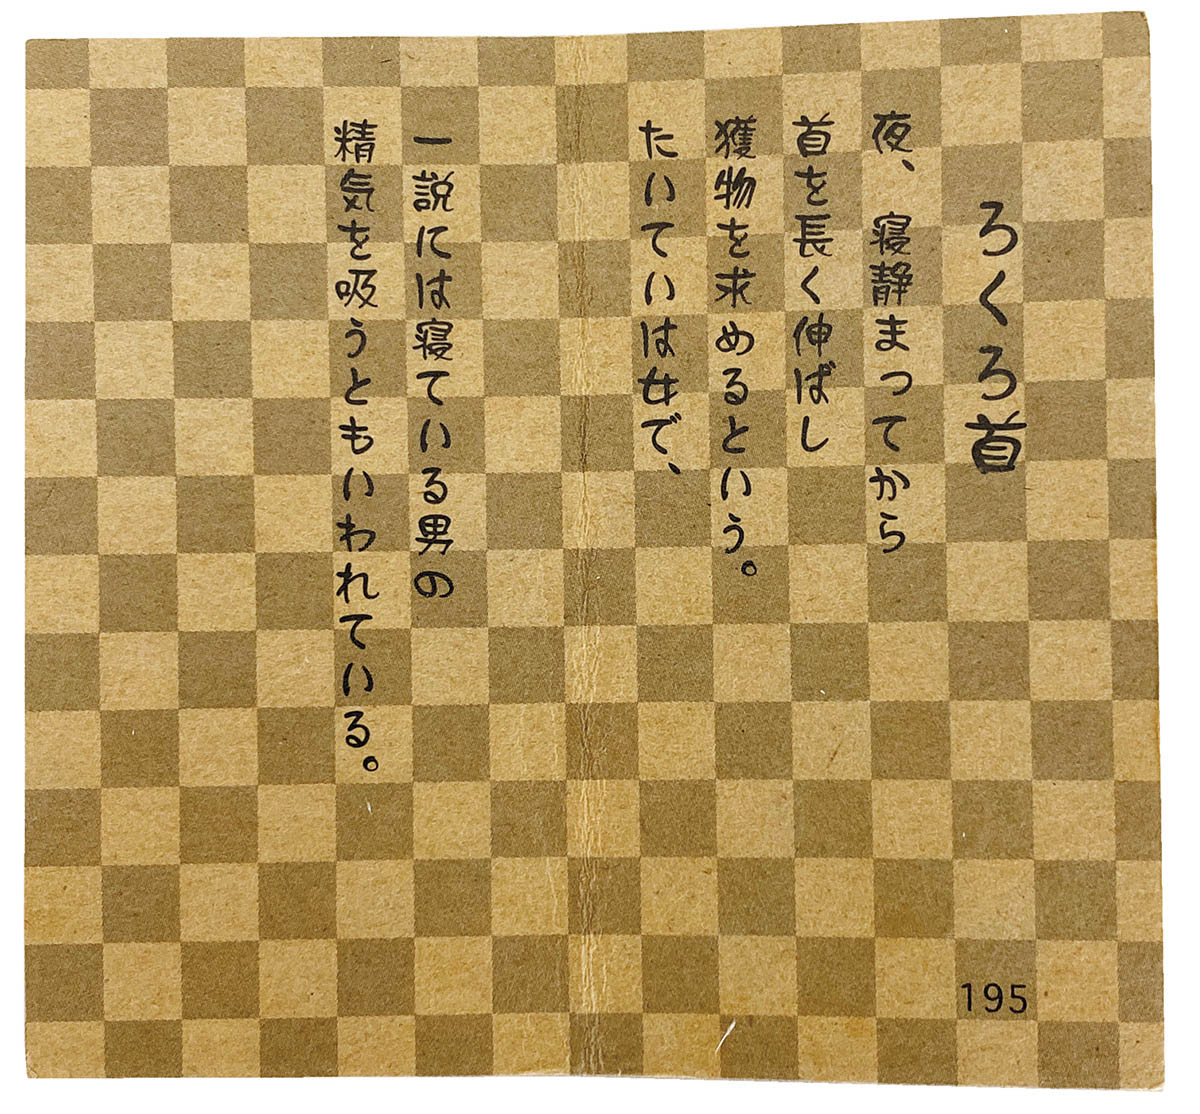 ろくろ首
夜、寝静まってから
首を長く伸ばし
獲物を求めるという。
たいていは女で、
一説には寝ている男の
精気を吸うともいわれている。
195